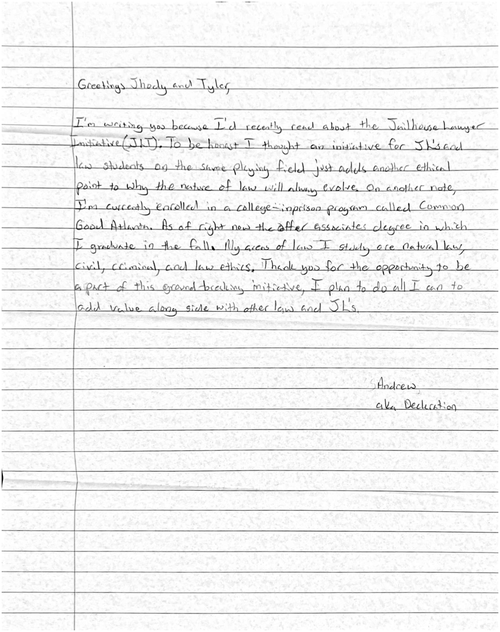 Greetings Jhody and Tyler,
I'm writing you because I'd recently read about the Jailhouse Lawyer
Initiative (JLI). To be honest I thought an initiative for JL's and
law students on the same playing field just adds another ethical
point to why the nature of law will alway evolve. On another note,
I'm currently enrolled in a college-inprison program called Common
Good Atlanta. As of right now the offer associates degree in which
I graduate in the fall. My areas of law I study are natural law,
civil, criminal, and law ethics. Thank you for the opportunity to be
a part of this ground-breaking initiative, I plan to do all I can to
add value along side with other law and JL's.
Andrew
aka Decleration